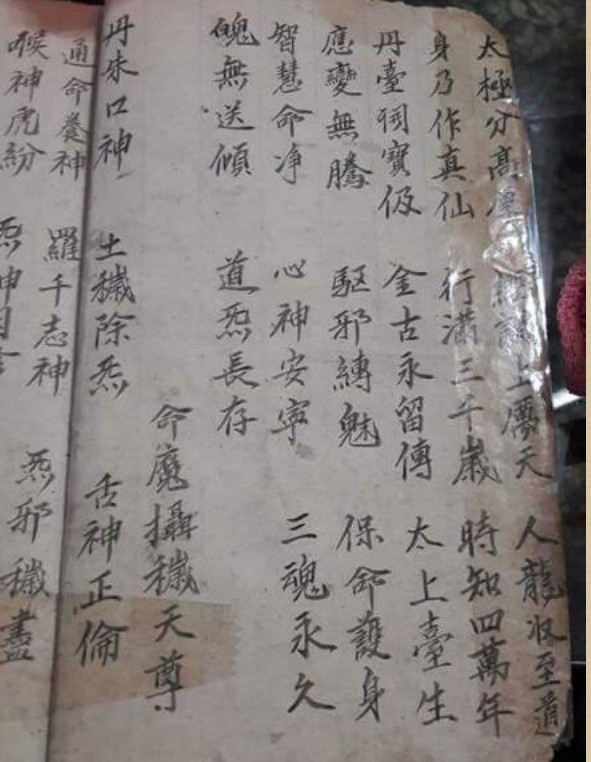 太極分高 上天 人龍收至道
身乃作真仙 行滿三千歲 時知四萬年
丹臺寶伋 金古永留傳 太上臺生
應變無騰 驅邪縛魅 保命護身
智慧命净 心神安寧 三魂永久
魄無送傾 道炁長存
命魔攝穢天尊
丹朱口神 土穢除炁 舌神正倫
通命養神 羅千志神 炁邪穢盡
喉神虎紛 炁神